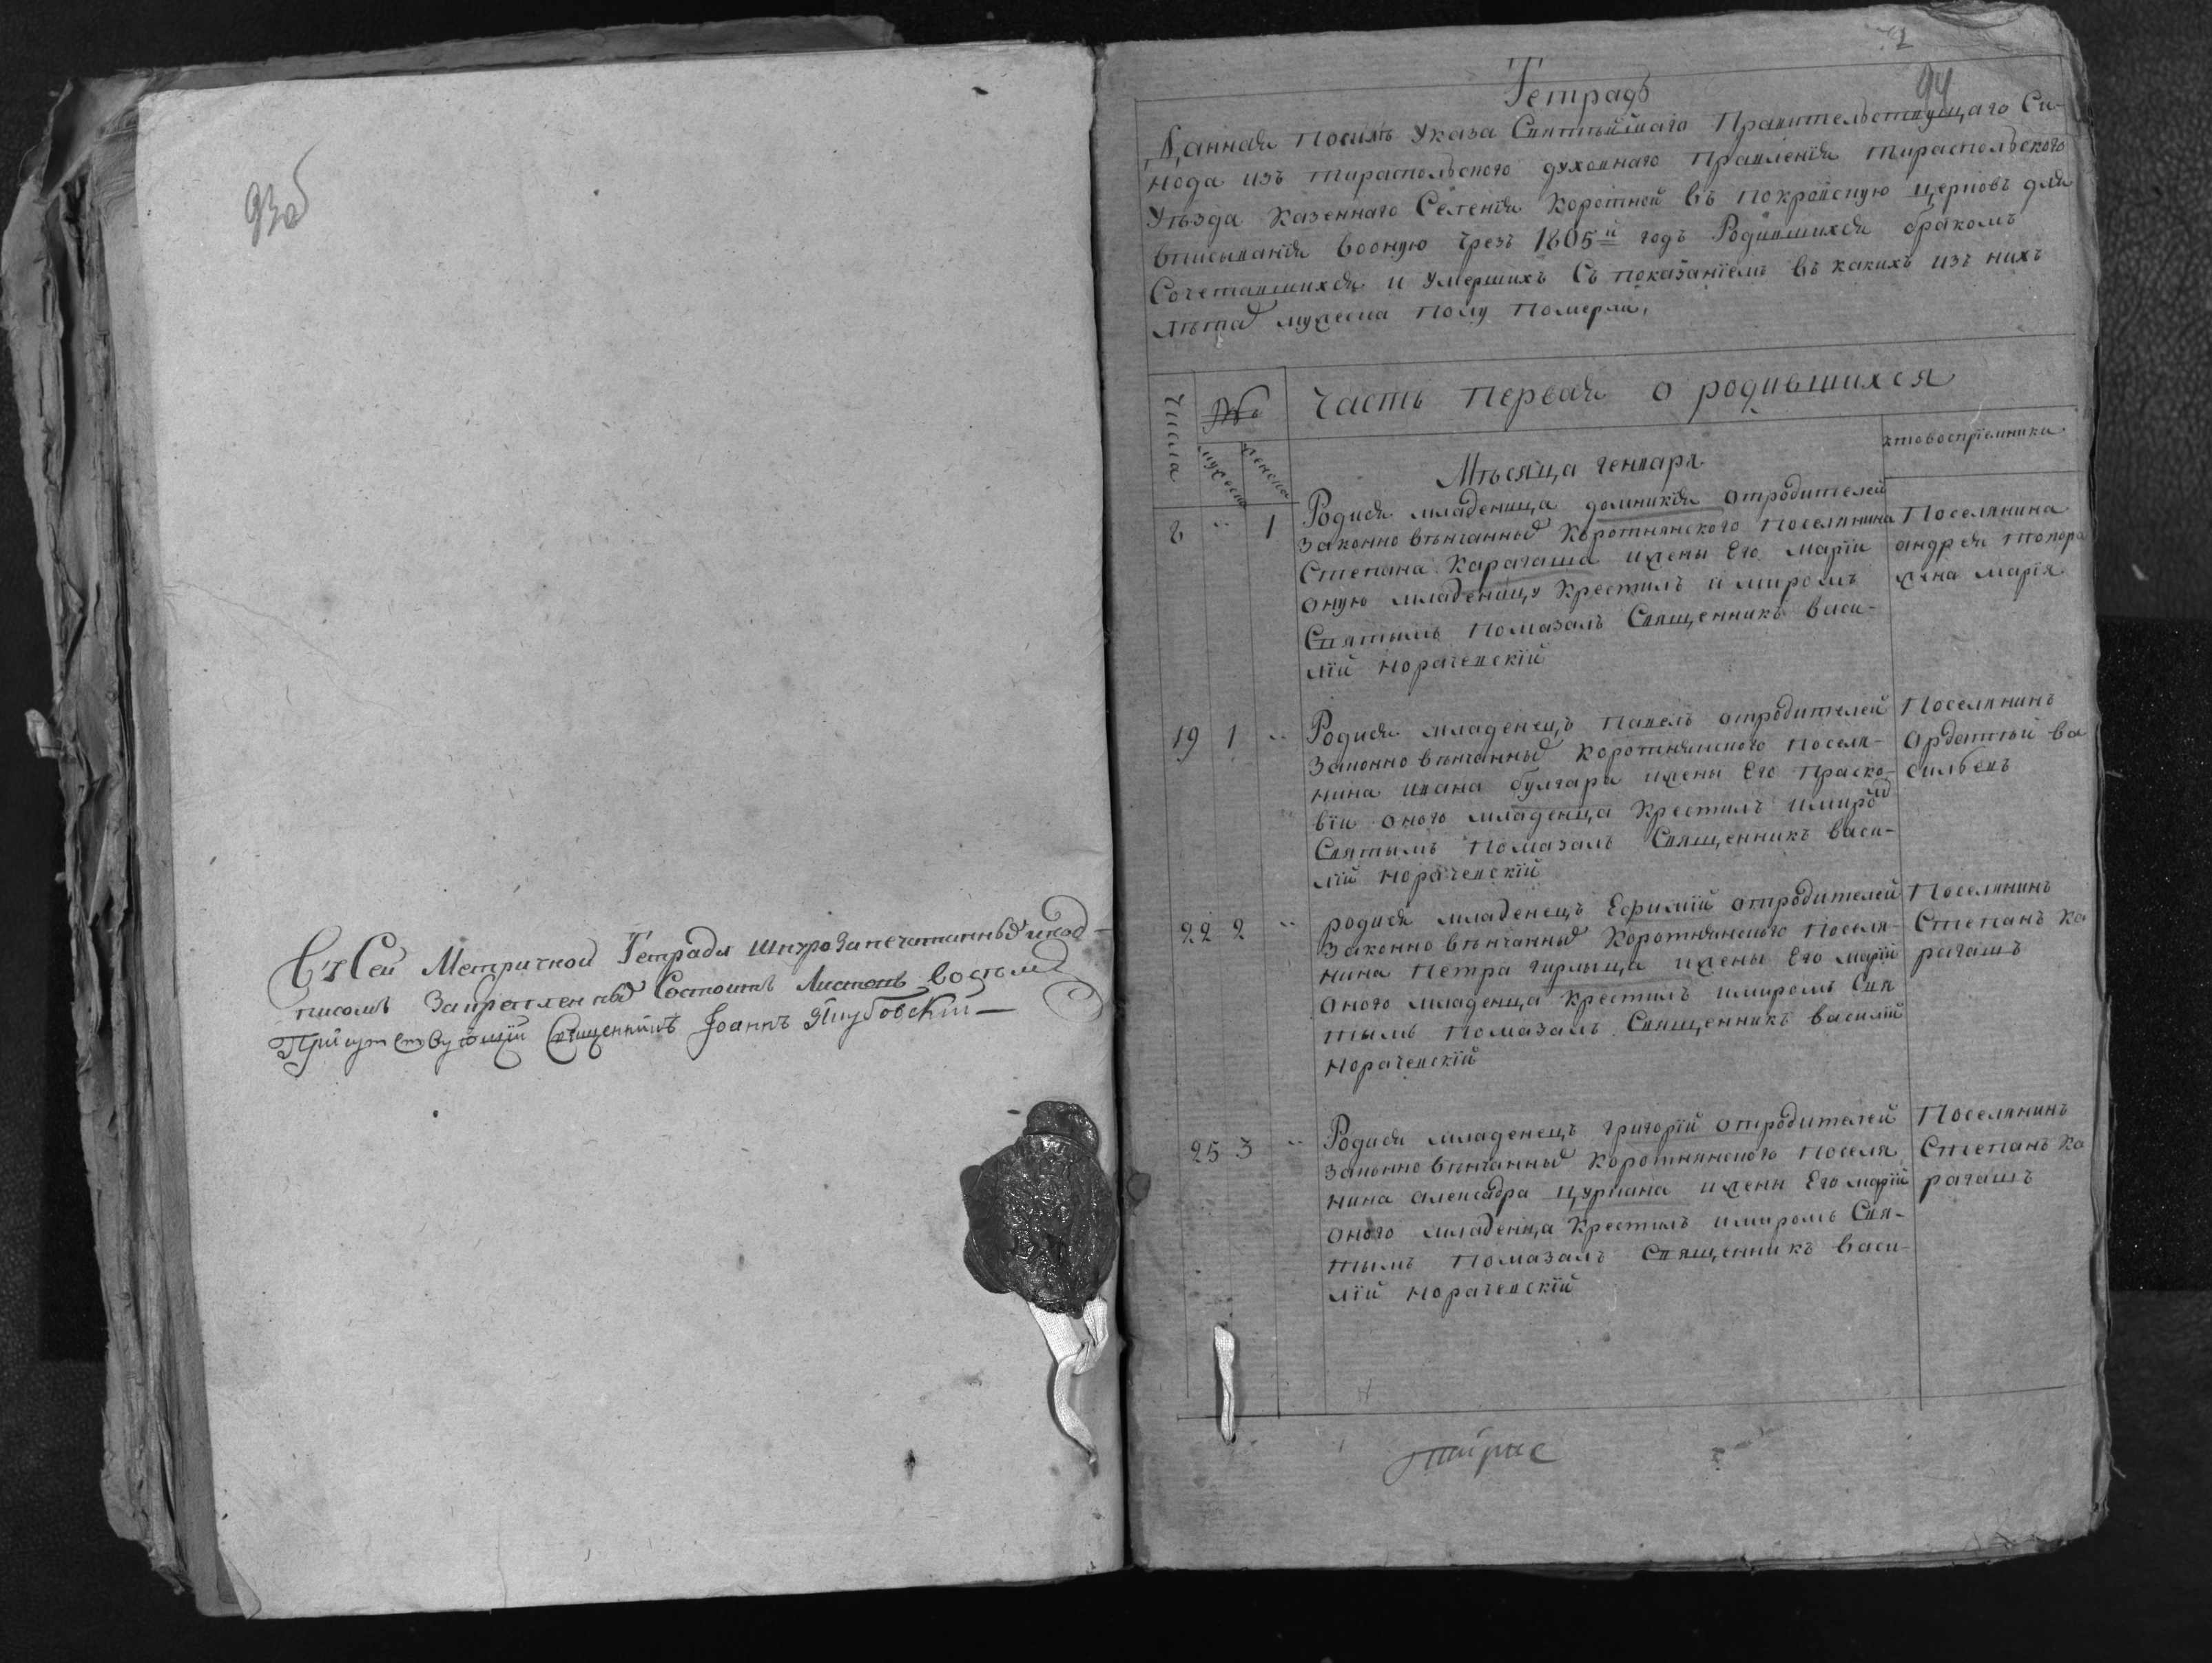 93об
Въ Сей Метричной Тетради шнурозапечатанныхъ и под-
писомъ Закрепленныхъ Состоитъ Листовъ восемь
Присутствующiй Священникъ Iоаннъ Якубовскiй
94
Тетрадь
Данная Посилѣ Указа Святѣйшаго Правительствующаго Си-
нода изъ тираспольского духовнаго правленiя тираспольского
Уѣзда Казеннаго Селенiя Коротной въ покровскую церковь для
вписыванiя вооную чрезъ 1805й годъ Родившихся бракомъ
Сочетавшихся и Умершихъ Съ показанiемъ въ какихъ изъ нихъ
лѣтах мужеска полу померли,
Числа
№
мужеска
женска
Часть первая о родившихся
кто воспрiемники
Мѣсяца генваря
8 " 1
Родися младеница домникiя отродителей
Законно вѣнчанных Коротнянского поселянина
Степана Карагаша ижены Его марiи
оную младеницу Крестилъ и миромъ
Святымъ Помазалъ Священникъ васи-
лiй норачевскiй
Поселянина
андрея топора
жена марiя
19 1 "
Родися младенецъ павелъ отродителей
Законно вѣнчанных Коротнянского поселя-
нина ивана булгара ижены Его праско-
вiи оного младенца Крестилъ имиром
Святымъ помазалъ Священникъ васи-
лiй норачевскiй
Поселянинъ
ва
сильевъ
22 2 "
родися младенецъ Ефимiй отродителей
Законно вѣнчанных Коротнянского поселя-
нина Петра гирлица ижены Его марiи
оного младенца крестилъ имиромъ Свя
тымъ помазалъ Священникъ василiй
норачевскiй
Поселянинъ
Степанъ ка
рагашъ
25 3 "
Родися младенецъ григорiй отродителей
Законно вѣнчанных Коротнянского поселя
нина алексадра цуркана ижены Его марiи
оного младенца Крестилъ имиромъ Свя-
тымъ помазалъ Священникъ васи-
лiй норачевскiй
Поселянинъ
Степанъ ка
рагашъ